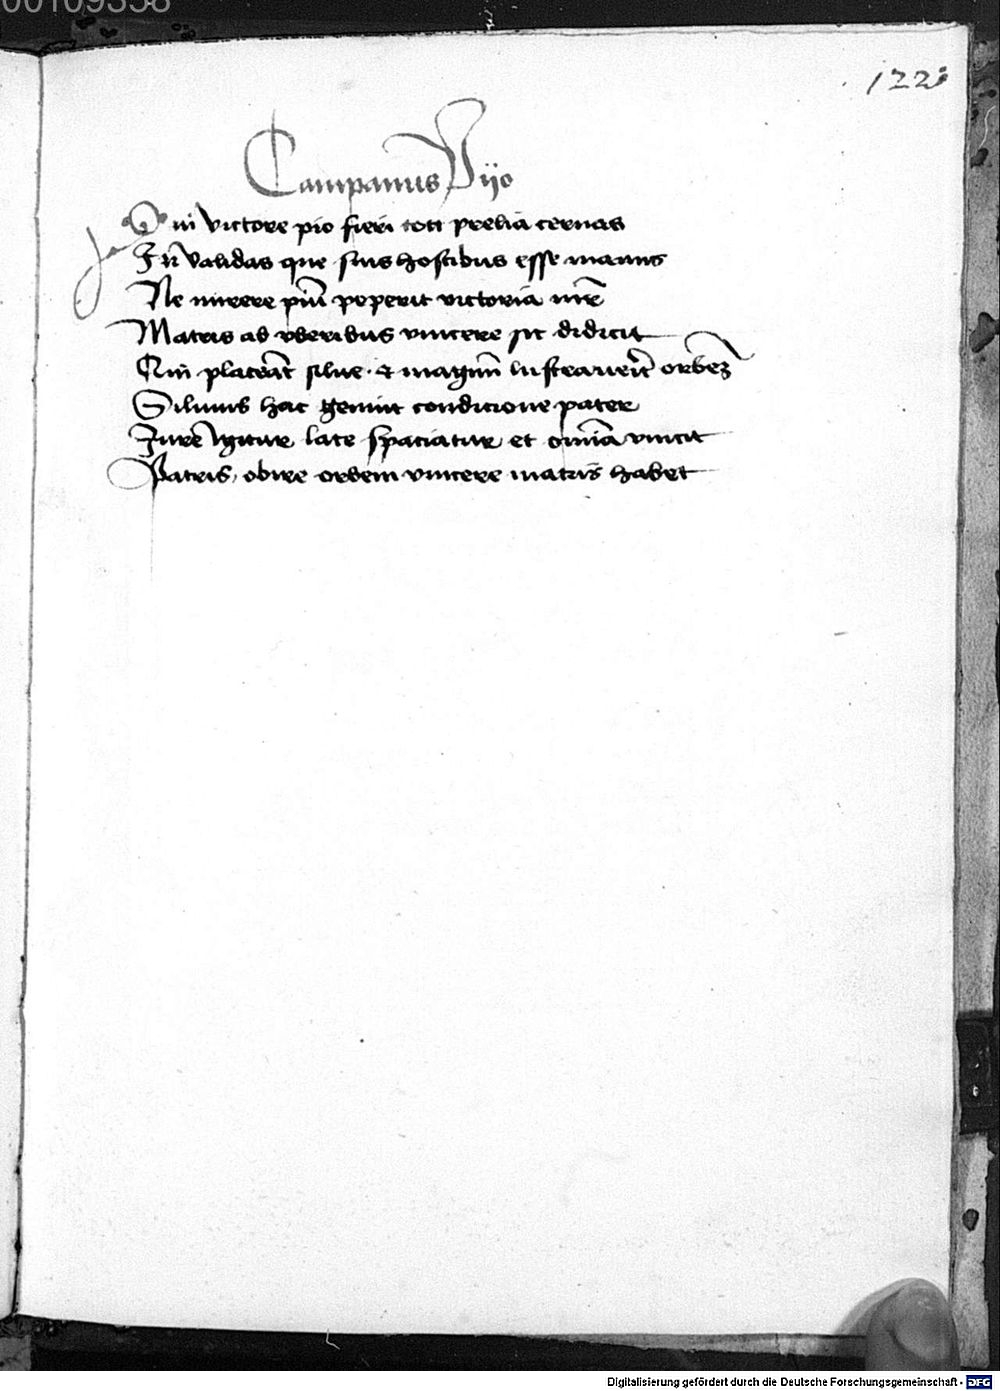 00109358
122
Campanus Pijo
Qui victore pio fieri tott prelia cernas
In validas que suis hostibus esse manus
Ne mirere piũ peperit victoria mr̃e
Matris ab vberibus vincere sic didicit
Cui placeãt silue · & magnũ lustrauerĩt orbeʒ
Siluius hac genuit condicione pater
Jure Igitur late spaciatur et omĩa vincit
Patris, obire orbem vincere matris habet
Digitalisierung gefördert durch die Deutsche Forschungsgemeinschaft - DFG